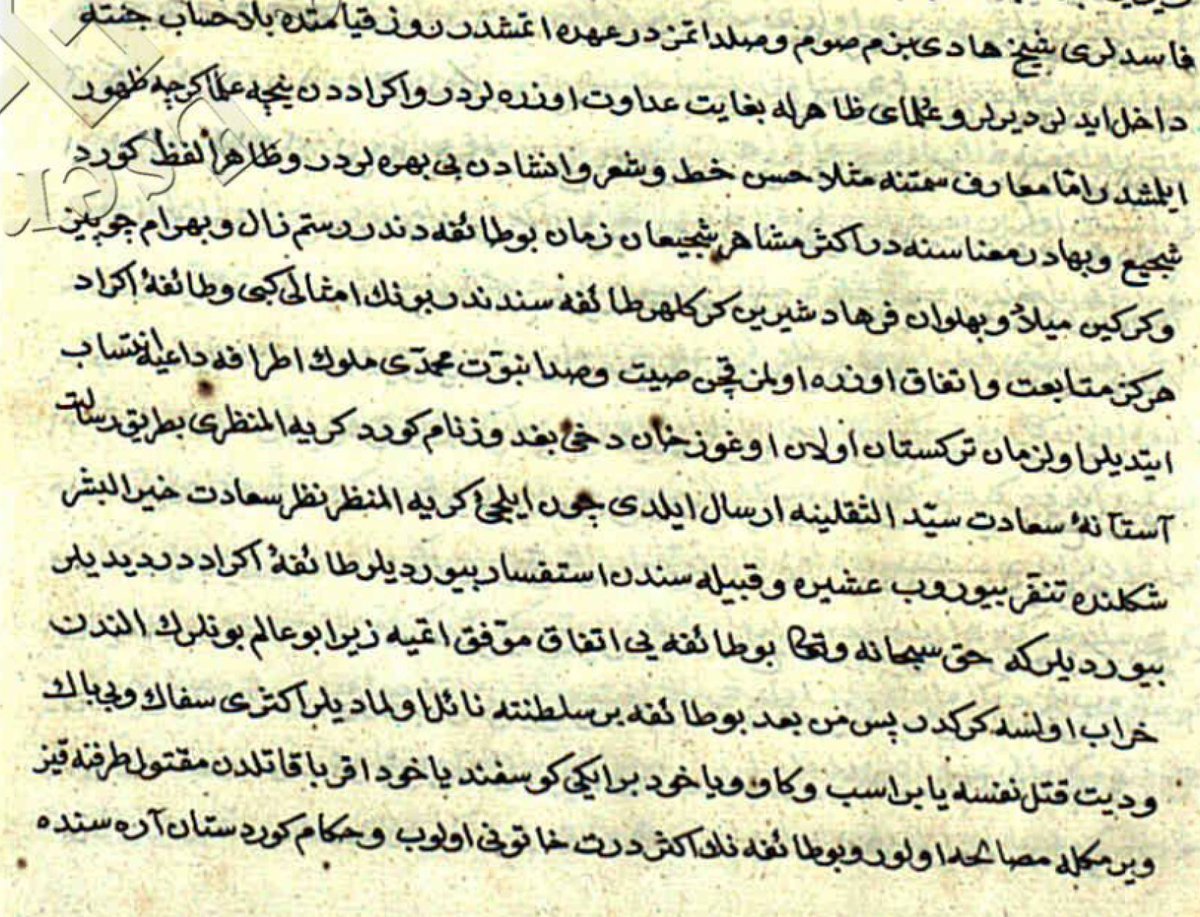 فاسدلری شیخ هادی بزم صوم و صلداتمزدر عهده اتمشدر روز قیامتده بلاحساب جنته
داخل ایدلر دیرلر و علمای ظاهرله بغایت عداوت اوزره لردر و اکراددن نیچه علما کرچه ظهور
ایلمشدر اما معارف سمتنه مثلا حسن خط و شعر و انشادن بی بهره لردر و ظاهرا لفظ کورد
شجیع و بهادر معناسنه در اکثر مشاهر شجیعان زمان بو طائفه دندر رستم زال و بهرام چوبین
و کرکین میلاد و بهلوان فرهاد شیرین کر کلهر طائفه سندندر بونك امثالی کبی و طائفهٔ اکراد
هرکز متابعت و اتفاق اوزره اولمز قچن صیت و صدا نبوت محمدی ملوك اطرافه داعیهٔ انتساب
ایتدیلر اول زمان ترکستان اولان اوغوز خان دخی بغدوز نام کورد کریه المنظری بطریق رسالت
آستانهٔ سعادت سید الثقلینه ارسال ایلدی چون ایلچیٔ کریه المنظر نظر سعادت خیر البشر
شکلنده تنفر بیوروب عشیره و قبیله سندن استفسار بیوردیلر طائفهٔ اکراددر دیدیلر
بیوردیلر که حق سبحانه و تعالی بو طائفه یی اتفاق موفق اتمیه زیرا بو عالم بونلرك الندن
خراب اولسه کرکدر پس من بعد بو طائفه بر سلطنته نائل اولمادیلر اکثری سفاك و بی باك
و دیت قتل نفسه یا بر اسب و کاو و یاخود بر ایکی کوسفند یاخود اقربا قاتلدن مقتول طرفنه قیز
ویرمکله مصالحه اولور و بو طائفه نك اکثر درت خاتونی اولوب و حکام کوردستان آره سنده